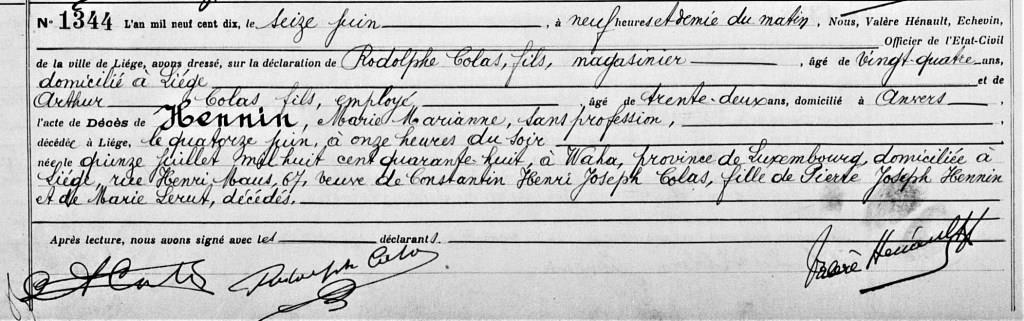 N° 1344 L'an mil neuf cent dix, le seize juin, à neuf heures et demie du matin, Nous, Valère Hénault, Echevin,
Officier de l'Etat-Civil
de la ville de Liége, avons dressé, sur la déclaration de Rodolphe Colas, fils, magasinier, âgé de vingt-quatre ans,
domicilié à Liége et de
Arthur Colas fils, employé, âgé de trente-deux ans, domicilié à Anvers,
l'acte de Décès de Hennin, Marie Marianne, sans profession,
décédée à Liége, le quatorze juin, à onze heures du soir
née le quinze juillet mil huit cent quarante-huit, à Waha, province de Luxembourg, domiciliée à
Liége, rue Henri Maus, 67, veuve de Constantin Henri Joseph Colas, fille de Pierre Joseph Hennin
et de Marie Lerut, décédés.
Après lecture, nous avons signé avec les déclarants.
Rodolph Colas Valère Hénault